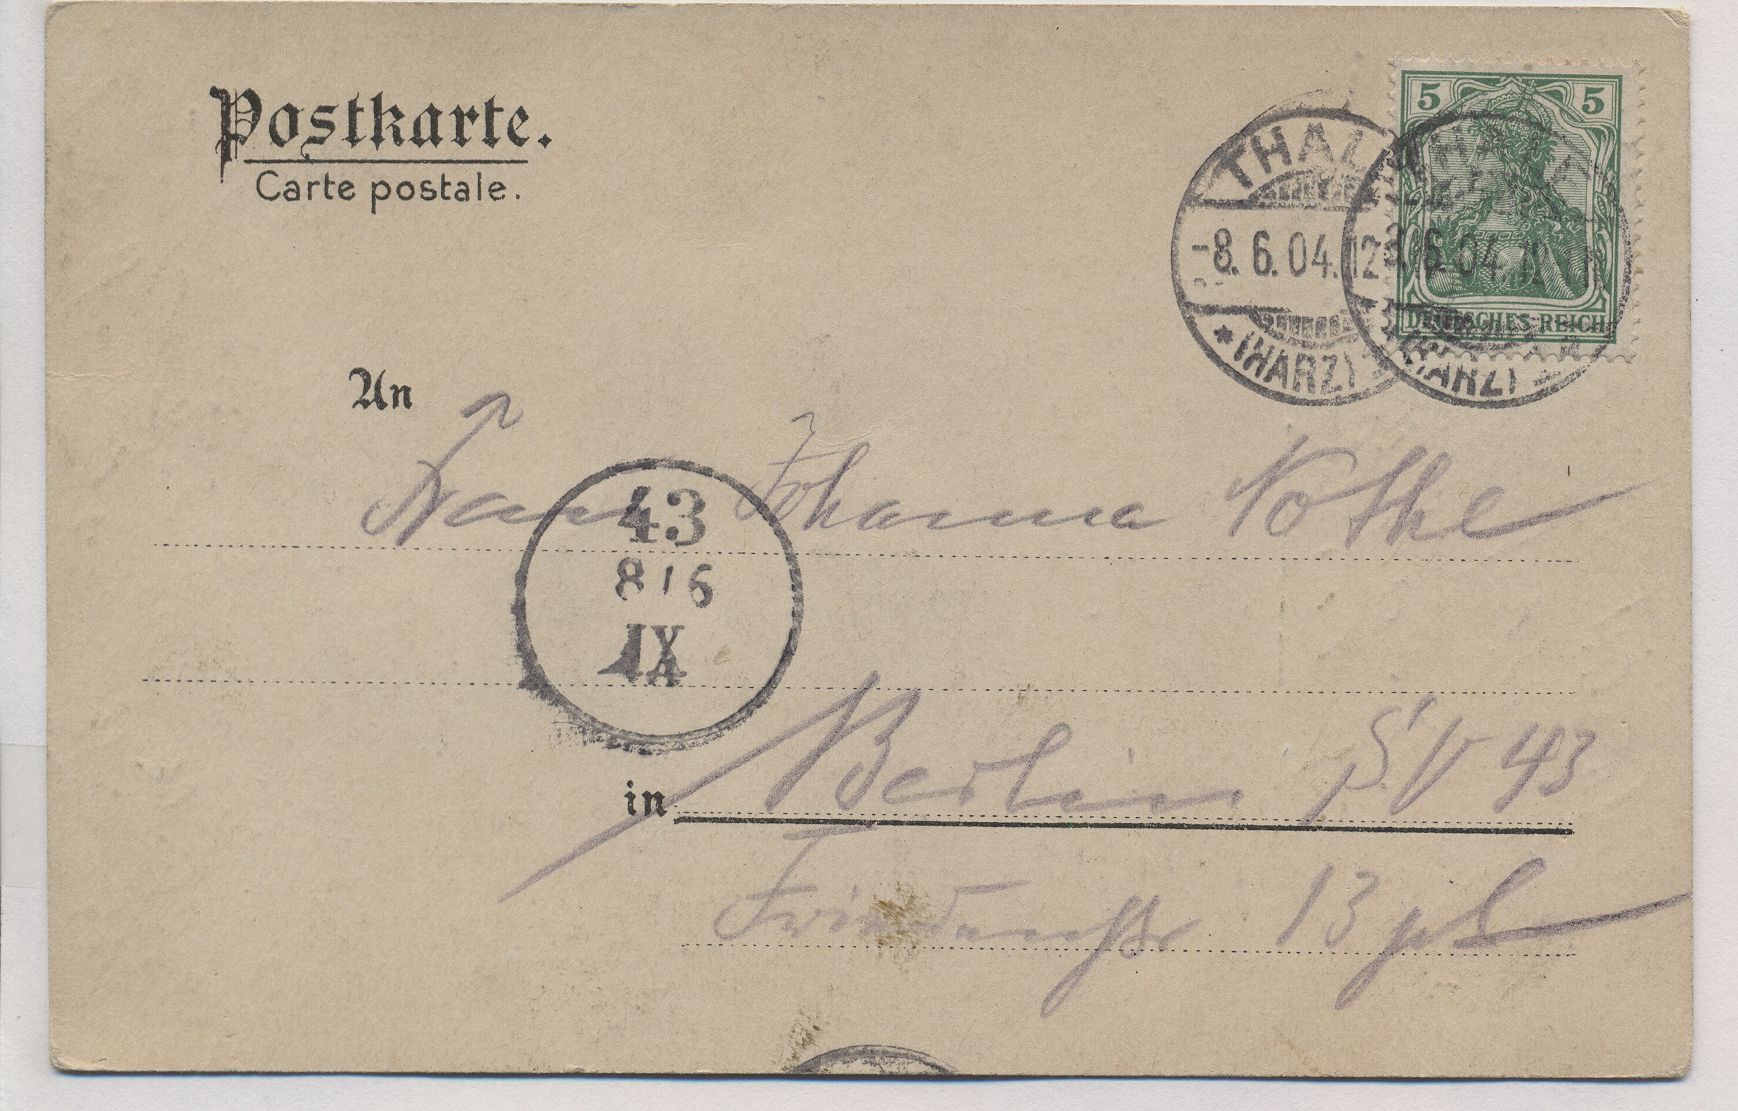 Postkarte.
Carte postale.
5 5
DEUTSCHES REICH
THALE
-8.6.04.12
* (HARZ)
THALE
8.6.04.12
(HARZ)
An
Frau Johanna Nothe
43
8/6
IX
in Berlin SW 43
13 pt